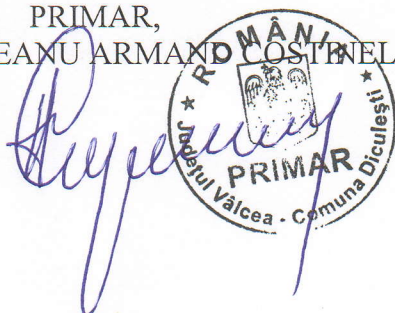 PRIMAR,
EANU ARMAND COSTINEL
ROMÂNIA
PRIMAR
Județul Vâlcea - Comuna Diculești